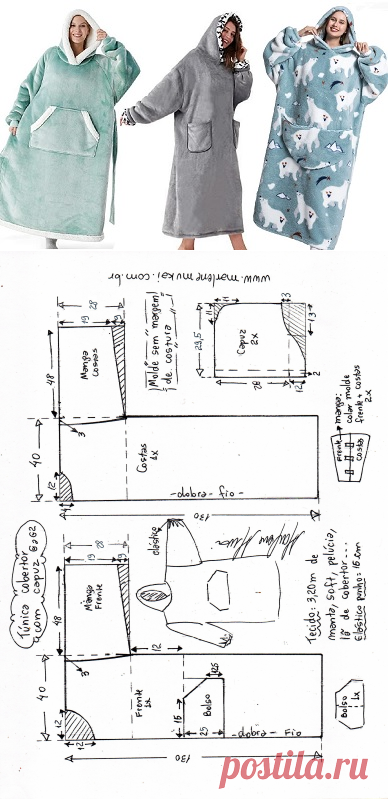 www.marlenemukai.com.br
28
19
9
48
Manga
Costas
"Molde sem margem"
"de costura"
11
11
3
13
Capuz
2x
29,5
28
12
2
manga:
colar molde
frente + costas
2x
Frente
costas
40
3
12
Costas
1x
-dobra- -fio-
130
Túnica cobertor
com capuz 8a62
28
19
9
48
Manga
Frente
elástico
Tecido: 3,20m de
manta, soft, pelúcia,
lã de cobertor...
Elástico punho: 16cm
40
3
12
12
12
Frente
1x
16
12,5
Bolso
25
-dobra- -Fio
130
Bolso
1x
postila.ru